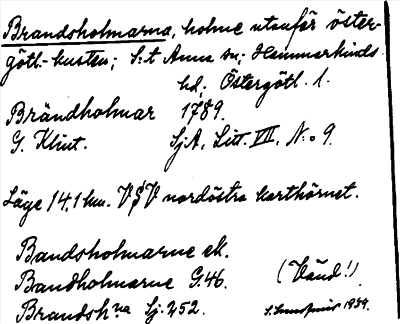 Brandsholmarna, holme utanför öster-
götl.-kusten; S:t Anna sn; Hammarkinds
hd; Östergötl. l.
Brändholmar 1789.
G. Klint. SjA, Litt. VII, N:o 9.
Läge 14,1 km. VSV nordöstra karthörnet.
Bandsholmarne ek.
Bandholmarne G.46. (Vänd!)
Brandsh:na Sj. 252. 1934.